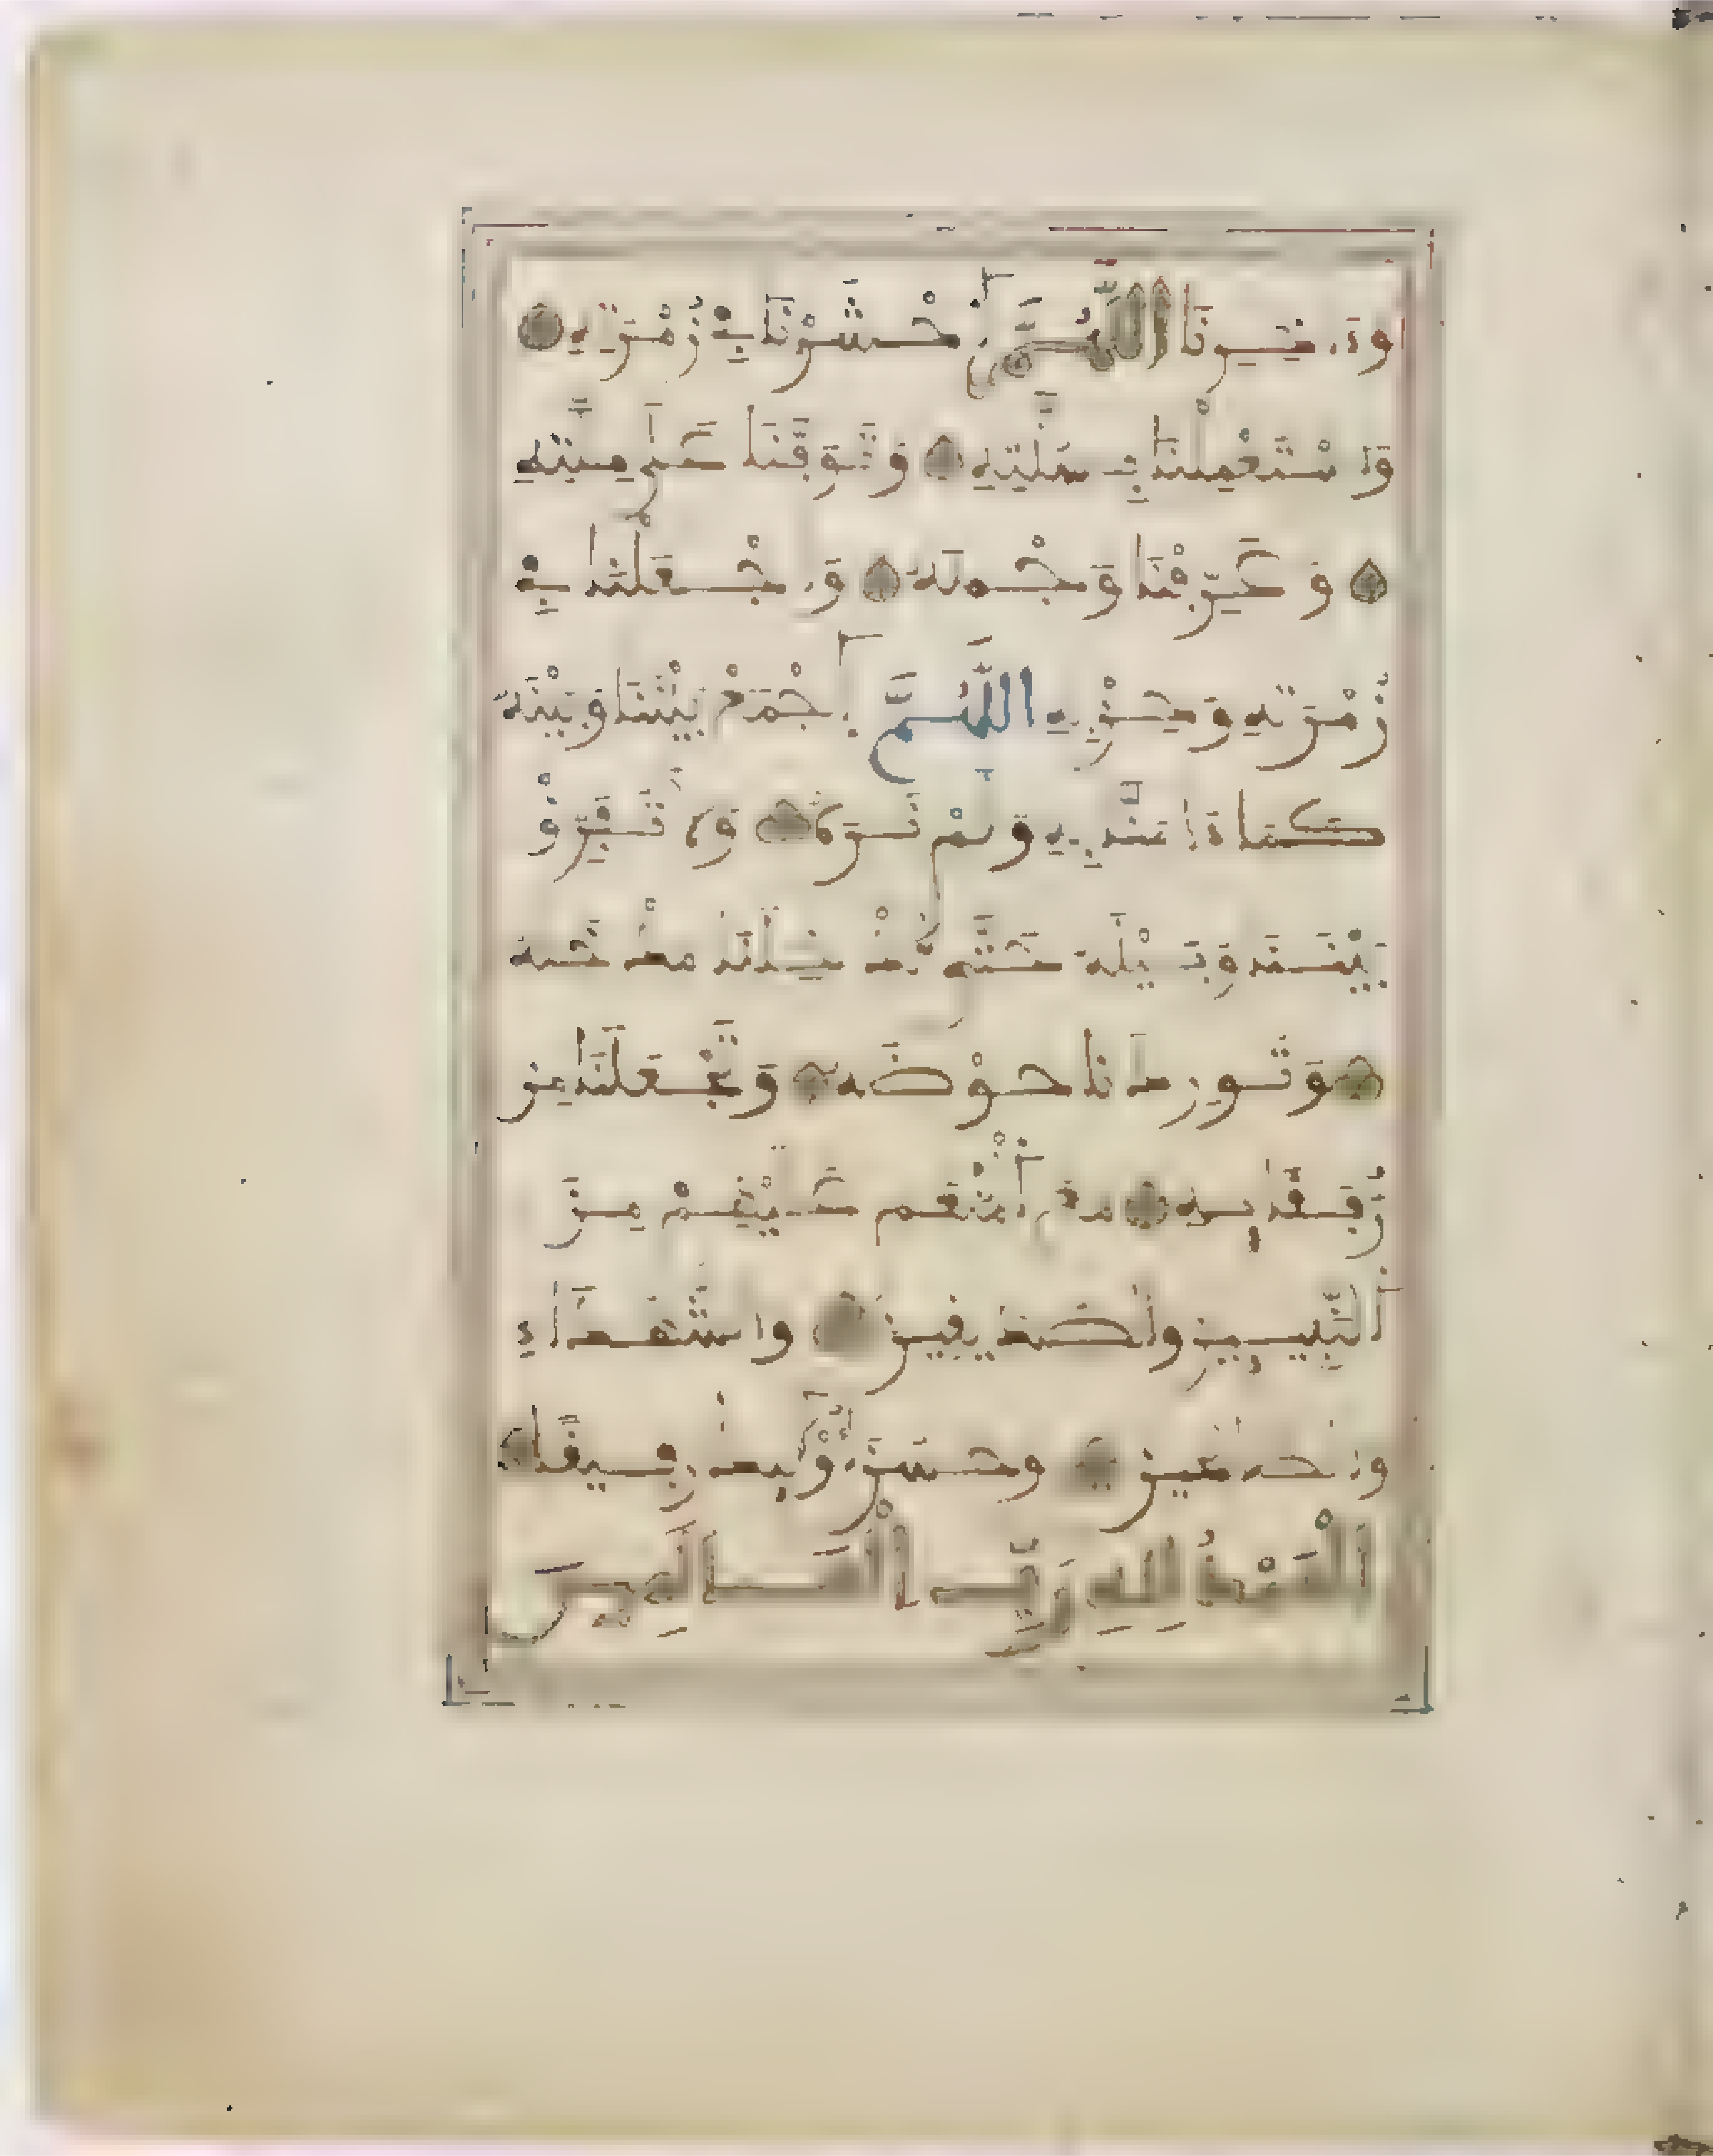 اللَّهُمَّ احْشُرْنَا فِي زُمْرَتِهِ
وَاسْتَعْمِلْنَا بِسُنَّتِهِ وَتَوَفَّنَا عَلَى مِلَّتِهِ
وَعَرِّفْنَا وَجْهَهُ وَاجْعَلْنَا فِي
زُمْرَتِهِ وَحِزْبِهِ اللَّهُمَّ اجْمَعْ بَيْنَنَا وَبَيْنَهُ
كَمَا ءَامَنَّا بِهِ وَلَمْ نَرَهُ وَلَا تُفَرِّقْ
بَيْنَنَا وَبَيْنَهُ حَتَّى تُدْخِلَنَا مُدْخَلَهُ
وَتُورِدَنَا حَوْضَهُ وَتَجْعَلَنَا مِن
رُفَقَائِهِ مع المنعم عَلَيْهِمْ مِنَ
النَّبِيِّينَ وَالصِّدِّيقِينَ وَالشُّهَدَاءِ
وَالصَّالِحِينَ وَحَسُنَ أُوْلَئِكَ رَفِيقًا
اَلْحَمْدُ لِلهِ رَبِّ الْعَالَمِينَ